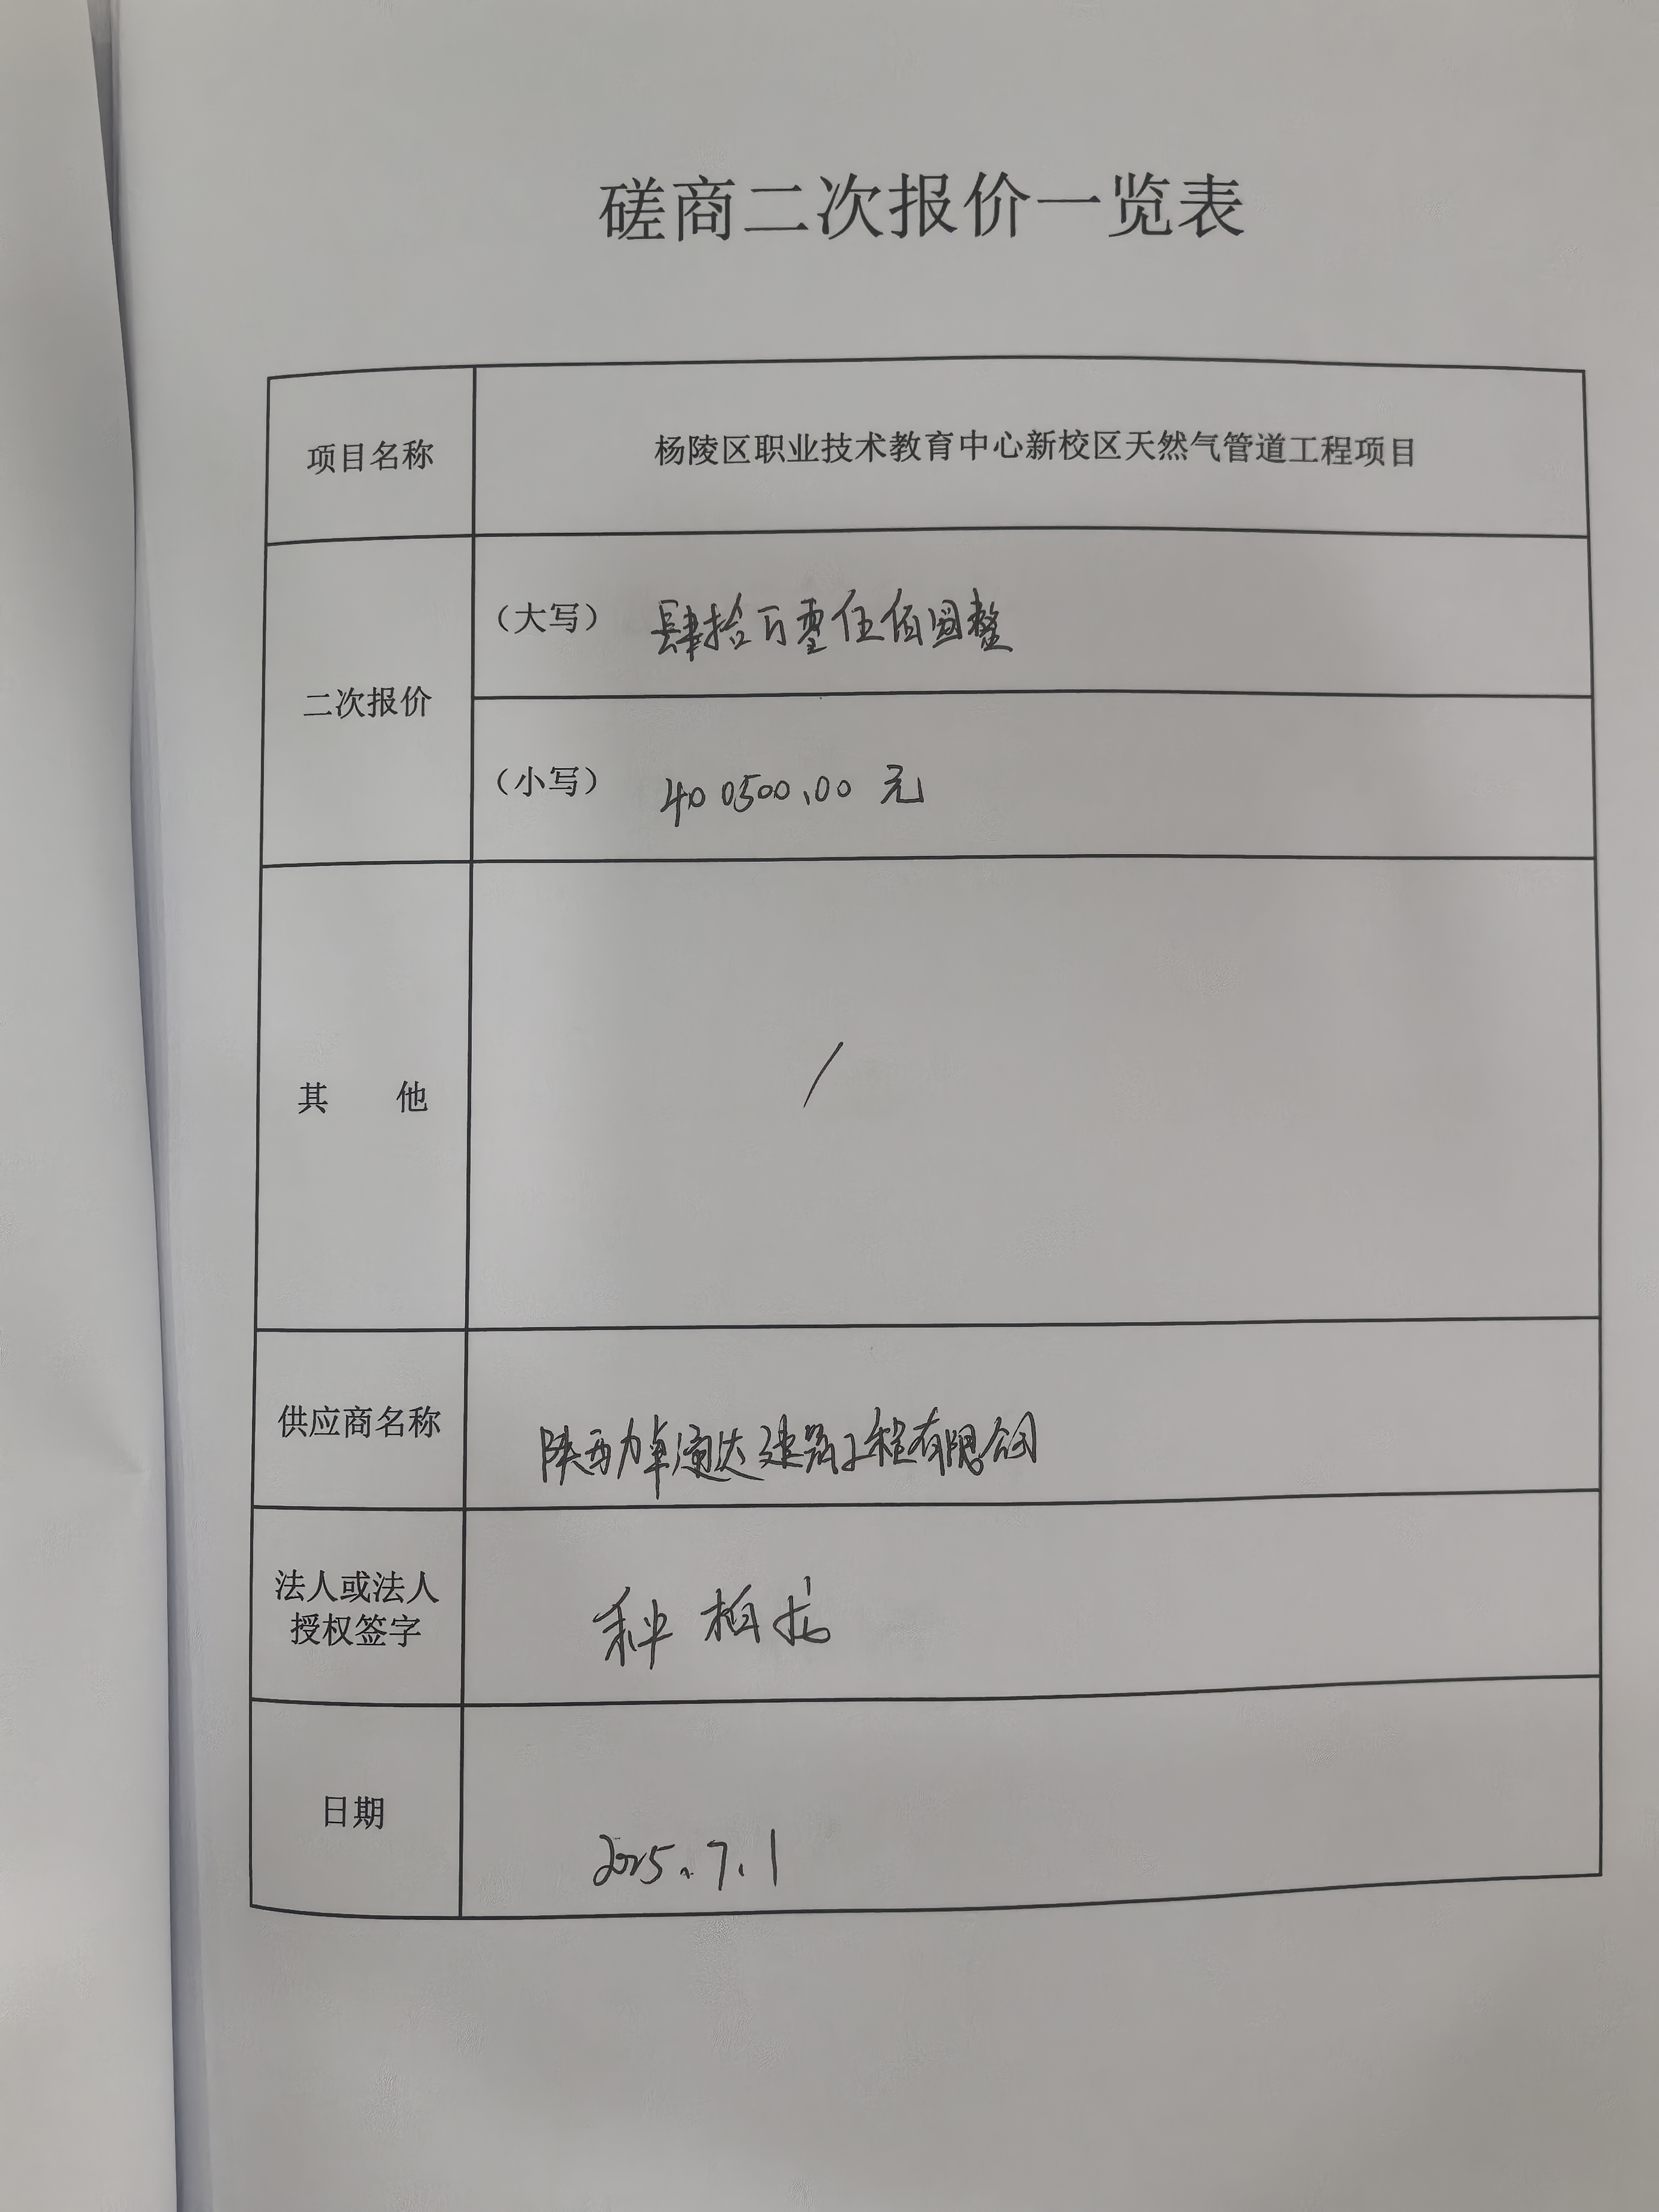 磋商二次报价一览表
项目名称 杨陵区职业技术教育中心新校区天然气管道工程项目
二次报价
（大写） 肆拾万零伍佰圆整
（小写） 400500.00 元
其 他 /
供应商名称 陕西力卓通达建筑工程有限公司
法人或法人
授权签字 种柏龙
日期 2025.7.1